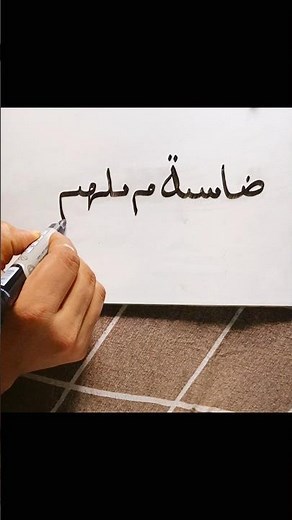 ضاسة م ملهم